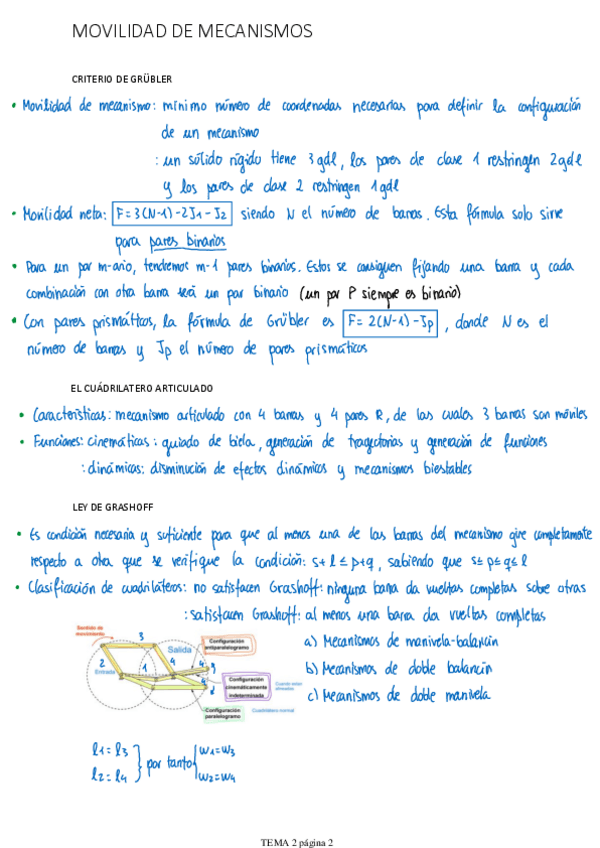 MOVILIDAD DE MECANISMOS
CRITERIO DE GRÜBLER
• Movilidad de mecanismo: mínimo número de coordenadas necesarias para definir la configuración
de un mecanismo
: un sólido rígido tiene 3 gdl, los pares de clase 1 restringen 2 gdl
y los pares de clase 2 restringen 1 gdl
• Movilidad neta: F=3(N-1)-2J1-J2 siendo N el número de barras. Esta fórmula solo sirve
para pares binarios
• Para un par m-ario, tendremos m-1 pares binarios. Estos se consiguen fijando una barra y cada
combinación con otra barra será un par binario (un par P siempre es binario)
• Con pares prismáticos, la fórmula de Grübler es F=2(N-1)-Jp, donde N es el
número de barras y Jp el número de pares prismáticos
EL CUÁDRILATERO ARTICULADO
• Características: mecanismo articulado con 4 barras y 4 pares R, de las cuales 3 barras son móviles
• Funciones: cinemáticas: guiado de biela, generación de trayectorias y generación de funciones
: dinámicas: disminución de efectos dinámicos y mecanismos biestables
LEY DE GRASHOFF
• Es condición necesaria y suficiente para que al menos una de las barras del mecanismo gire completamente
respecto a otra que se verifique la condición: s+l≤p+q, sabiendo que s≤p≤q≤l
• Clasificación de cuadriláteros: no satisfacen Grashoff: ninguna barra da vueltas completas sobre otras
: satisfacen Grashoff: al menos una barra da vueltas completas
a) Mecanismos de manivela-balancín
b) Mecanismos de doble balancín
c) Mecanismos de doble manivela
Sentido de
movimiento
3
Configuración
antiparalelogramo
Salida
2
1
4
Entrada
Configuración
cinemáticamente
indeterminada
Cuando están
alineadas
Configuración
paralelogramo
Cuadrilátero normal
l1=l3
l2=l4
por tanto
w1=w3
w2=w4
TEMA 2 página 2